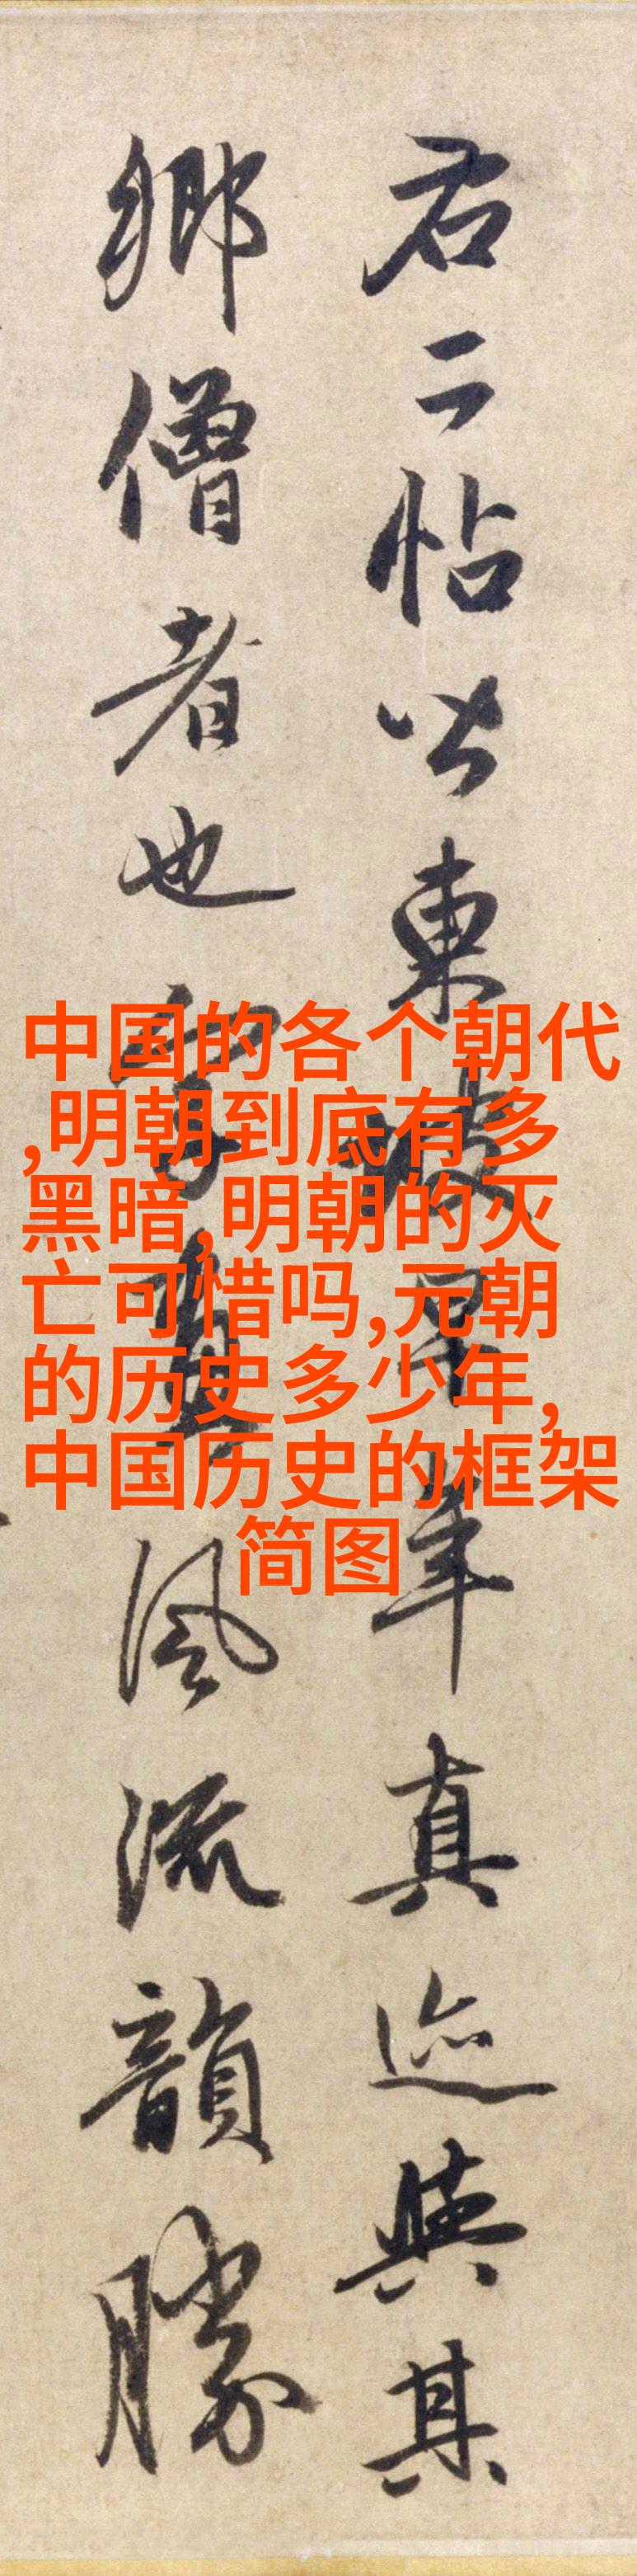 右二帖皆東坡早年真迹與其
鄉僧者也字畫風流韻勝
中国的各个朝代
,明朝到底有多
黑暗,明朝的灭
亡可惜吗,元朝
的历史多少年,
中国历史的框架
简图